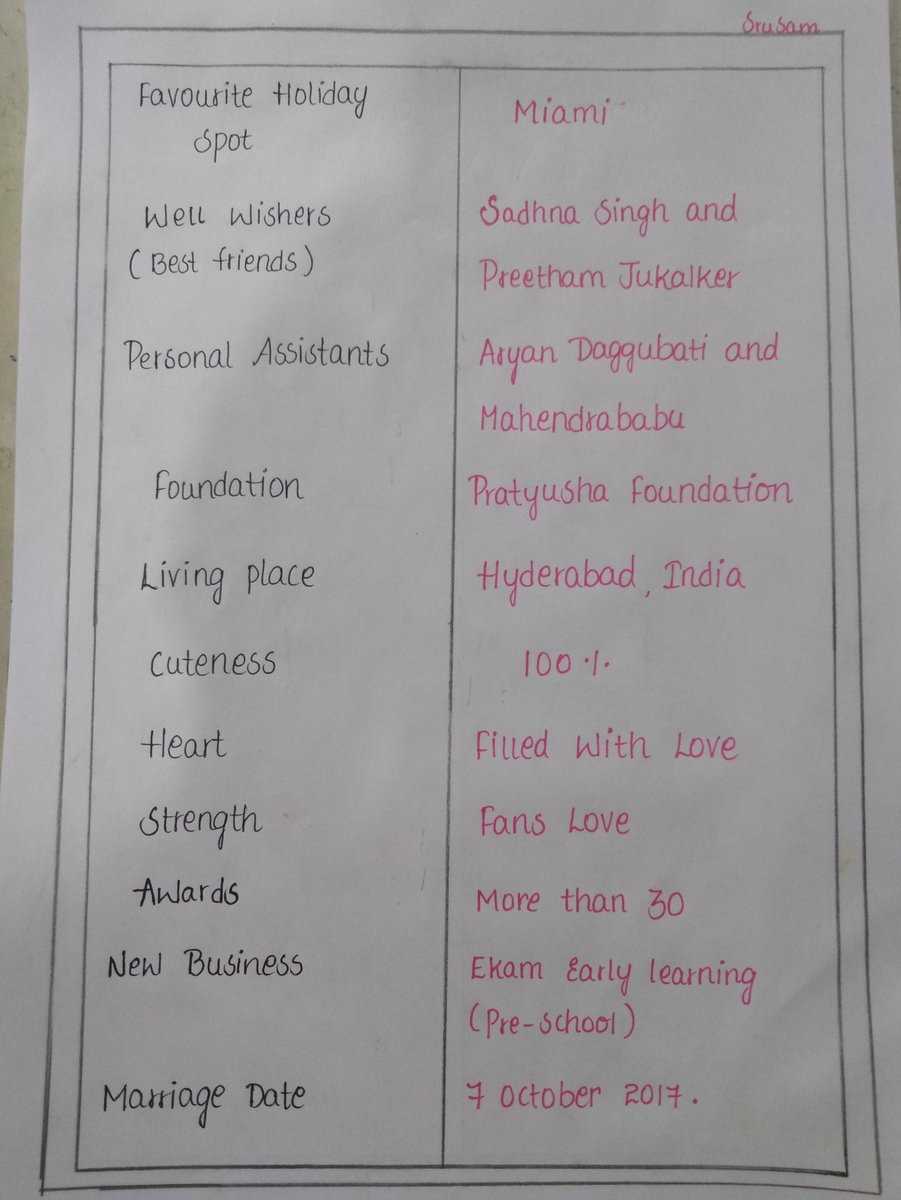 SruSam
Favourite Holiday Miami
Spot
Well Wishers Sadhna Singh and
(Best friends) Preetham Jukalker
Personal Assistants Aryan Daggubati and
Mahendrababu
Foundation Pratyusha Foundation
Living place Hyderabad, India
Cuteness 100 %
Heart Filled With Love
Strength Fans Love
Awards More than 30
New Business Ekam Early learning
(Pre-School)
Marriage Date 7 October 2017.